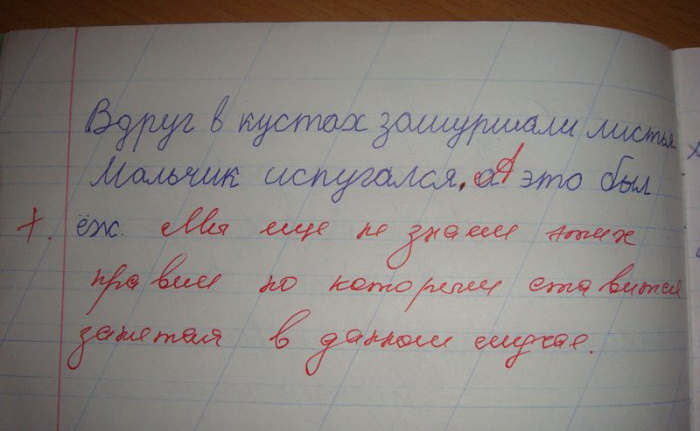 Вдруг в кустах зашуршали листья
Мальчик испугался. А это был
ёж. Мы еще не знаем этих
правил по которым ставится
запятая в данном случае.